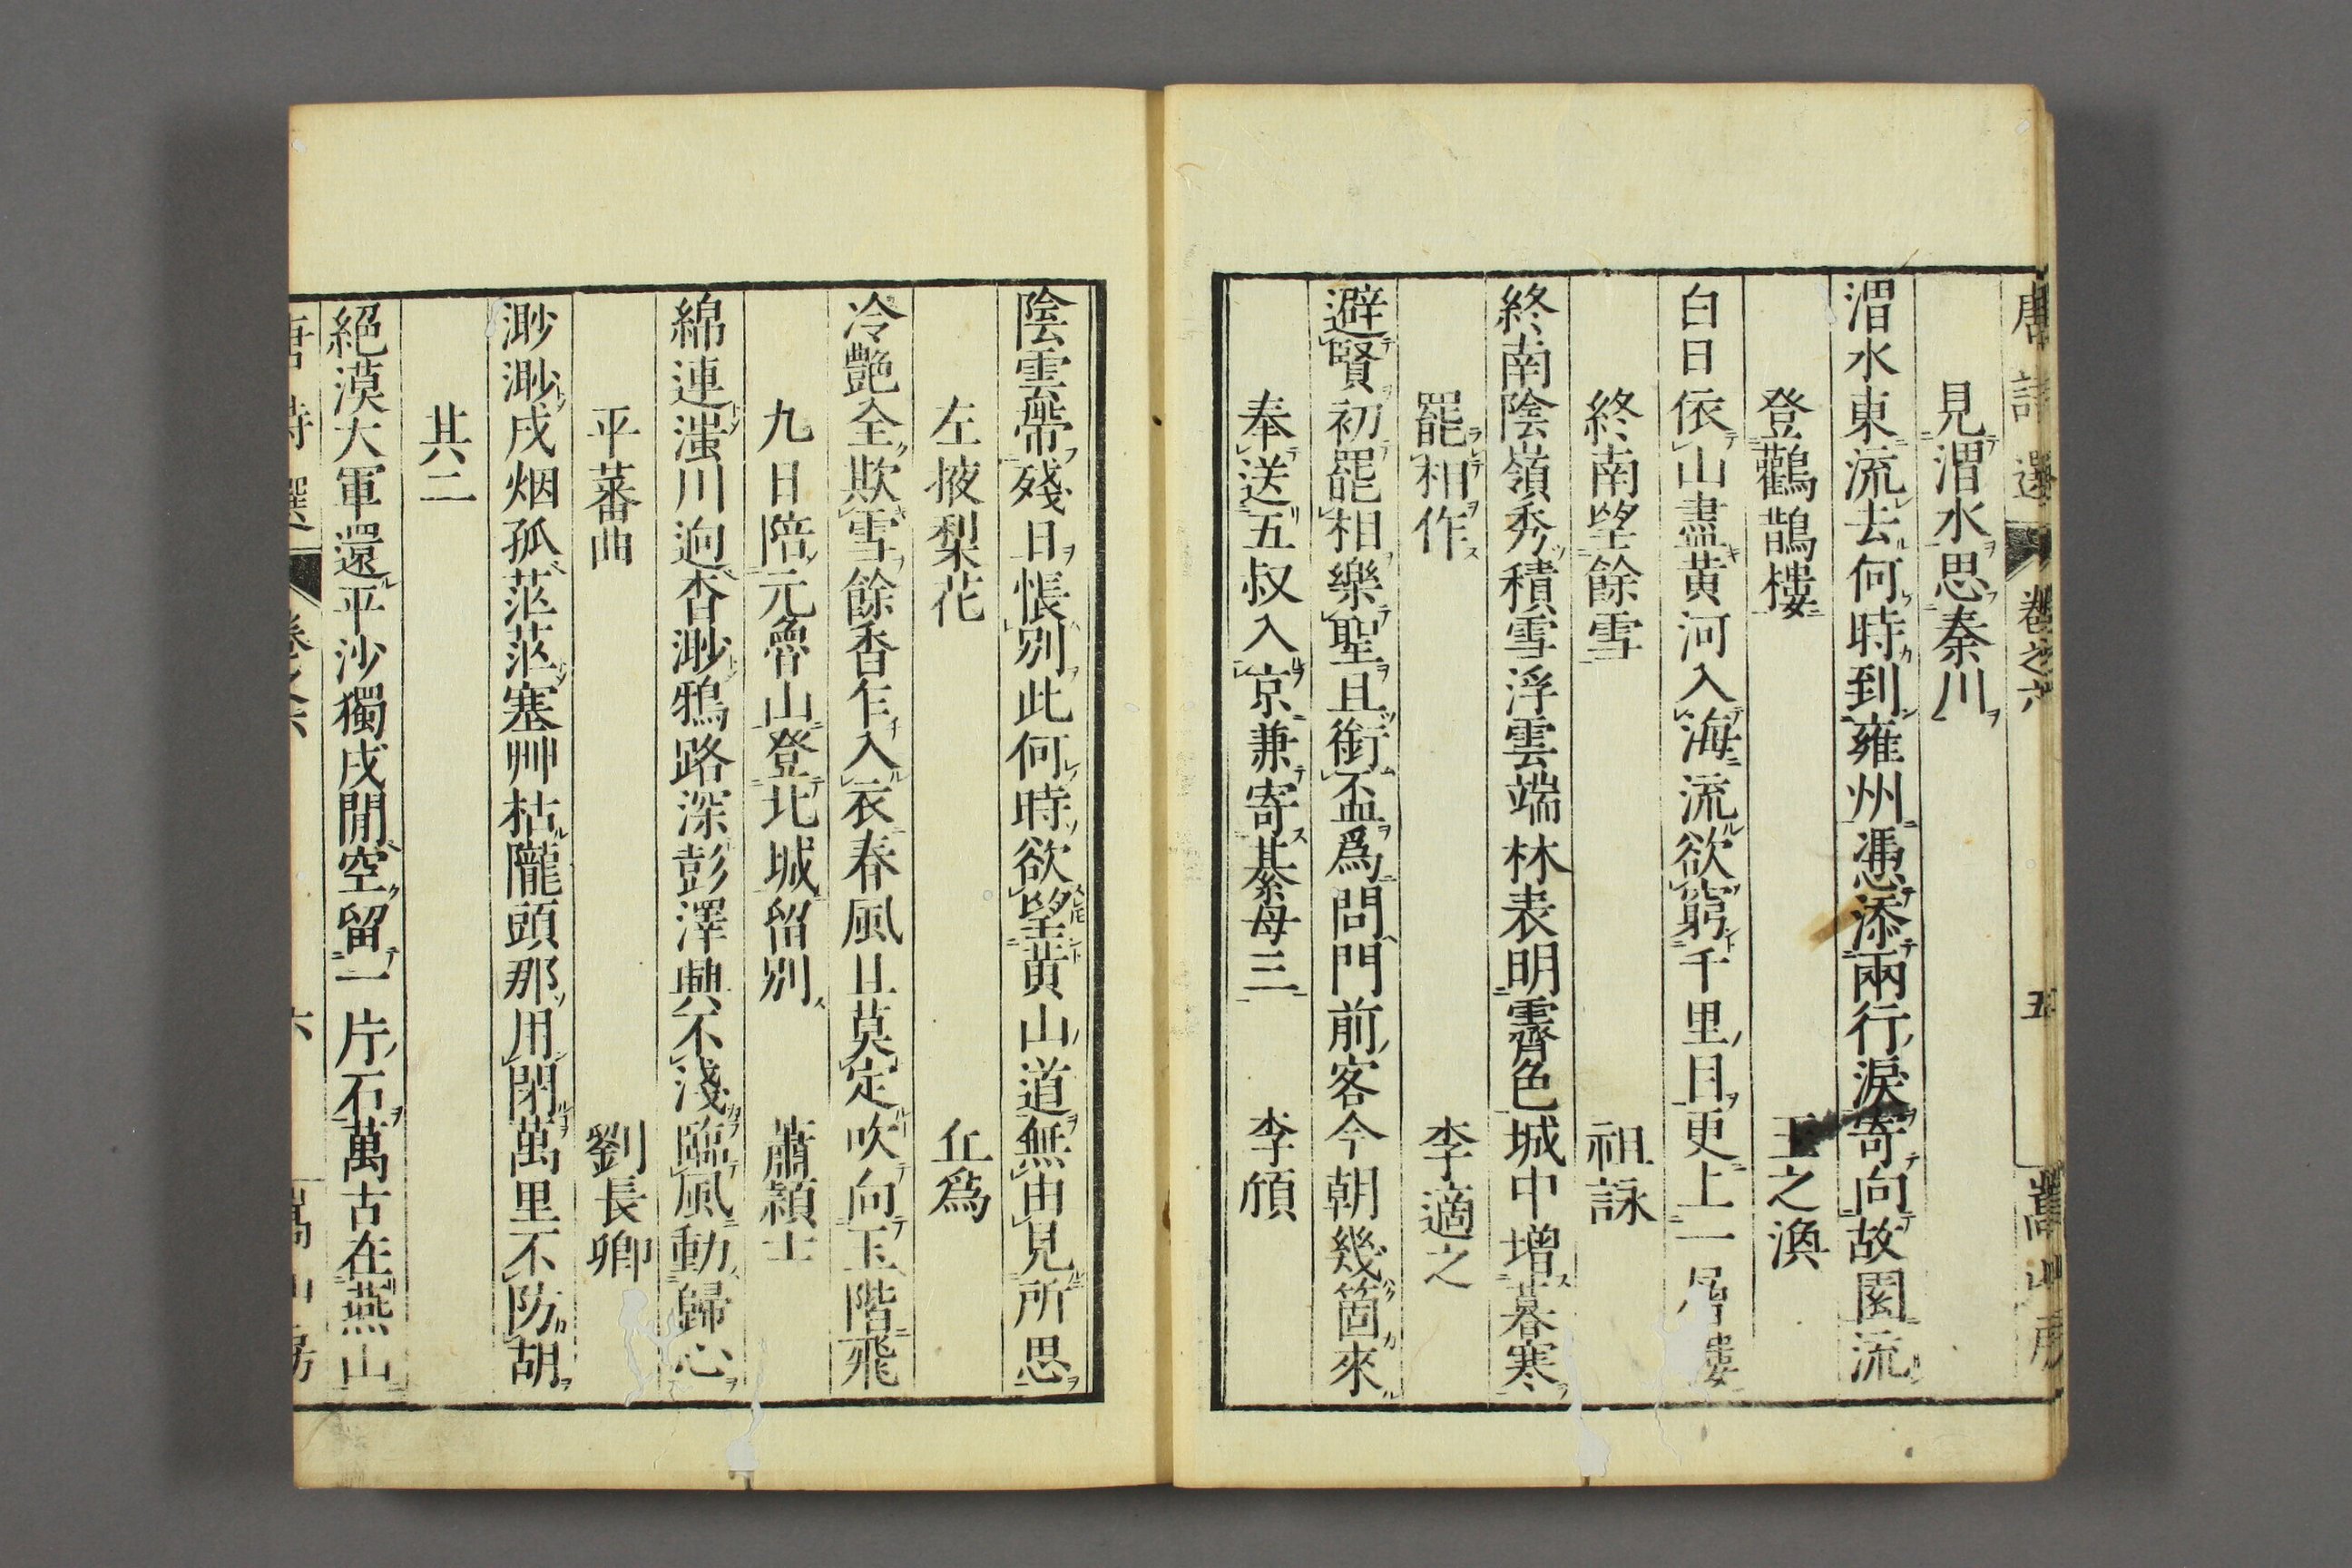 唐詩選 卷之六 五 嵩山房
見渭水思秦川
渭水東流去何時到雍州憑添兩行淚寄向故園流
登鸛鵲樓 王之渙
白日依山盡黃河入海流欲窮千里目更上一層樓
終南望餘雪 祖詠
終南陰嶺秀積雪浮雲端林表明霽色城中增暮寒
罷相作 李適之
避賢初罷相樂聖且銜盃爲問門前客今朝幾箇來
奉送五叔入京兼寄綦母三 李頎
陰雲帶殘日悵別此何時欲望黃山道無由見所思
左掖梨花 丘爲
冷艷全欺雪餘香乍入衣春風且莫定吹向玉階飛
九日陪元魯山登北城留別 蕭穎士
綿連滍川逈杳渺鴉路深彭澤興不淺臨風動歸心
平蕃曲 劉長卿
渺渺戍烟孤茫茫塞艸枯隴頭那用閉萬里不防胡
其二
絕漠大軍還平沙獨戍閒空留一片石萬古在燕山
唐詩選 卷之六 六 嵩山房